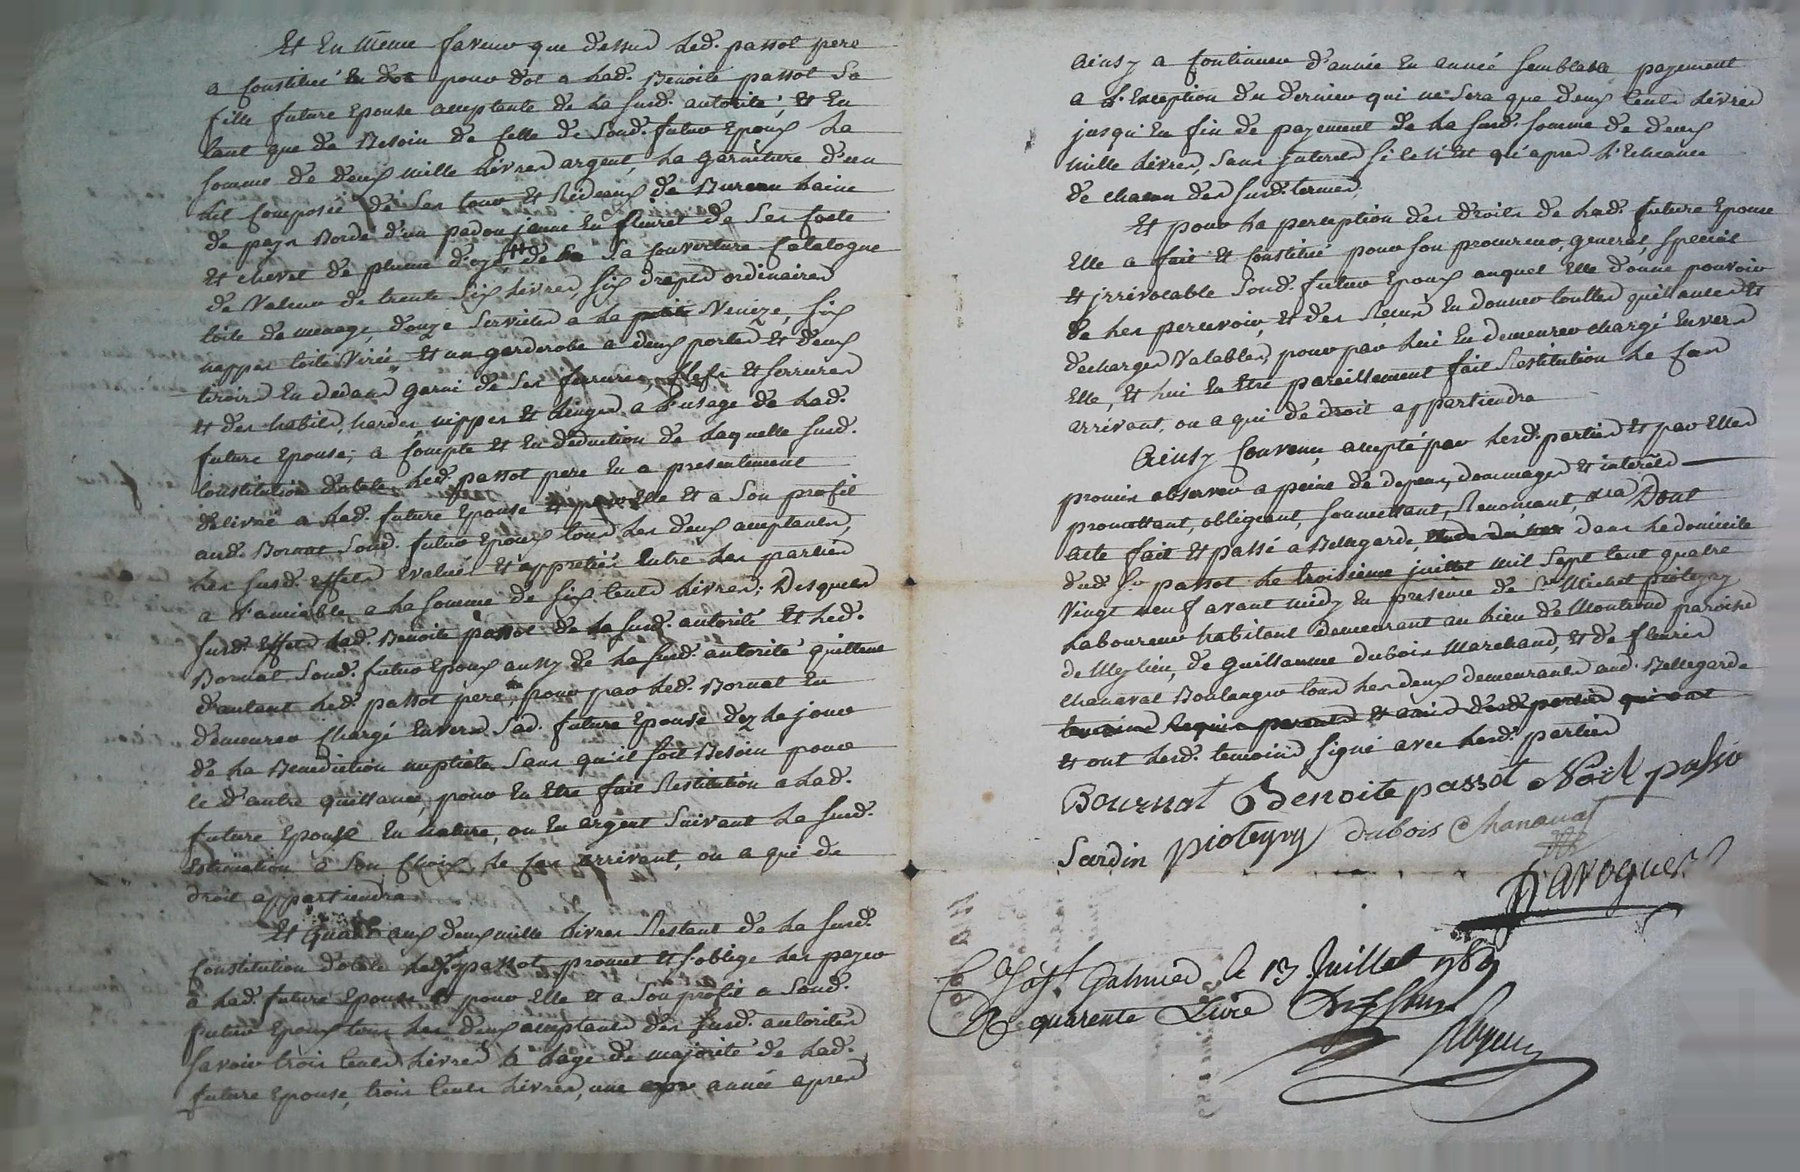 Et En Même faveur que dessus led. passot pere
a Constitué En dot pour dot a lad. Benoite passot Sa
fille future Epouse acceptante de la susd. autorité Et En
tant que de Besoin de Celle de Sond. futur Epoux la
Somme de deux mille livres argent, la garniture d'un
lit Composée de Ses tour Et Rideaux de Bureau laine
de pays Bordé d'un padou jaune En fleuret de Ses Coete
Et chevet de plume d'oye, de Sa Couverture Catalogne
de Valeur de trente Six livres, Six draps ordinaires
toile de menage, douze Serviettes a la Venize, Six
nappes toile Virée, Et un garderobe a deux portes Et deux
tiroirs En dedans garni de Ses ferrures, Clefs Et Serrures
Et des habits, hardes nippes Et linges a l'usage de lad.
future Epouse; a Compte Et En déduction de laquelle susd.
Constitution dotale led. passot pere En a presentement
delivré a lad. future Epouse Et pour Elle Et a Son profit
aud. Bornat Sond. futur Epoux tous les deux acceptants,
les susd. Effets Evalués Et appretiés Entre les parties
a l'amiable a la Somme de Six Cents livres; Desquels
susd. Effets lad. Benoite passot de la susd. autorité Et led.
Bornat Sond. futur Epoux aussy de la susd. autorité quittent
d'autant led. passot pere, pour par led. Bornat En
demeurer Chargé Envers Sad. future Epouse dez le jour
de la Benediction nuptiale Sans qu'il soit Besoin pour
Ce d'autre quittance, pour En Etre fait Restitution a lad.
future Epouse En nature, ou En argent Suivant la susd.
Estimation a Son Choix, le Cas arrivant, ou a qui de
droit appartiendra
Et Quant aux deux mille livres Restant de la susd.
Constitution dotale led. passot promet Et S'oblige les payer
a lad. future Epouse Et pour Elle Et a Son profit a Sond.
futur Epoux tous les deux acceptants des susd. autorités
Savoir trois Cents livres a l'age de majorité de lad.
future Epouse, trois Cents livres, une année apres
Ainsy a Continuer d'année En année Semblable payement
a l'Exception du dernier qui ne Sera que deux Cents livres
jusqu'En fin de payement de la susd. Somme de deux
mille livres, Sans Interets Si Ce n'Est qu'apres l'Echeance
de chacun des susd. termes
Et pour la perception des droits de lad. future Epouse
Elle a fait Et Constitué pour Son procureur, general, Special
Et jrrévocable Sond. futur Epoux auquel Elle donne pouvoir
de les percevoir, Et des Reçus En donner touttes quittances Et
decharges Valables, pour par lui En demeurer chargé Envers
Elle, Et lui En Etre pareillement fait Restitution le Cas
arrivant, ou a qui de droit appartiendra
Ainsy Convenu, accepté par lesd. parties Et par Elles
promis observer a peine de depens, dommages Et interets
promettant, obligeant, Soumettant, Renonçant, &ra Dont
acte fait Et passé a Bellegarde, dans le domicile
dud. Sr. passot le troisieme juillet mil Sept Cent quatre
Vingt neuf avant midy En presence de Sr. Michel pioteyry
Laboureur habitant demeurant au lieu de Montrond paroisse
de Meylieu, de Guillaume dubois Marchand, Et de fleuris
Chanavat Boulanger tous les deux demeurants aud. Bellegarde
temoins Requis parents Et amis desd. parties qui ont
Et ont lesd. temoins Signé avec lesd. parties
Bournat Benoite passot Noël passo
Sardin pioteyry dubois Chanavat
Javogues
C à St. Galmier le 13 Juillet 1789
R quarente Livre Dix Sous